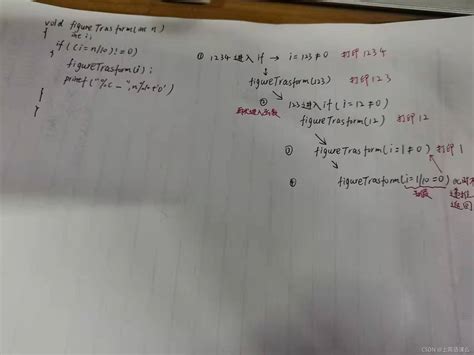 void figureTrasform(int n)
{
int i;
if((i=n/10)!=0)
figureTrasform(i);
printf("%c_",n%10+'0')
}
① 1234进入if → i=123≠0 打印1234
figureTrasform(123) 打印123
② 123进入if(i=12≠0)
再次进入函数
figureTrasform(12) 打印12
③ figureTrasform(i=1≠0) 打印1
④ figureTrasform(i=1/10=0)
返回
CSDN